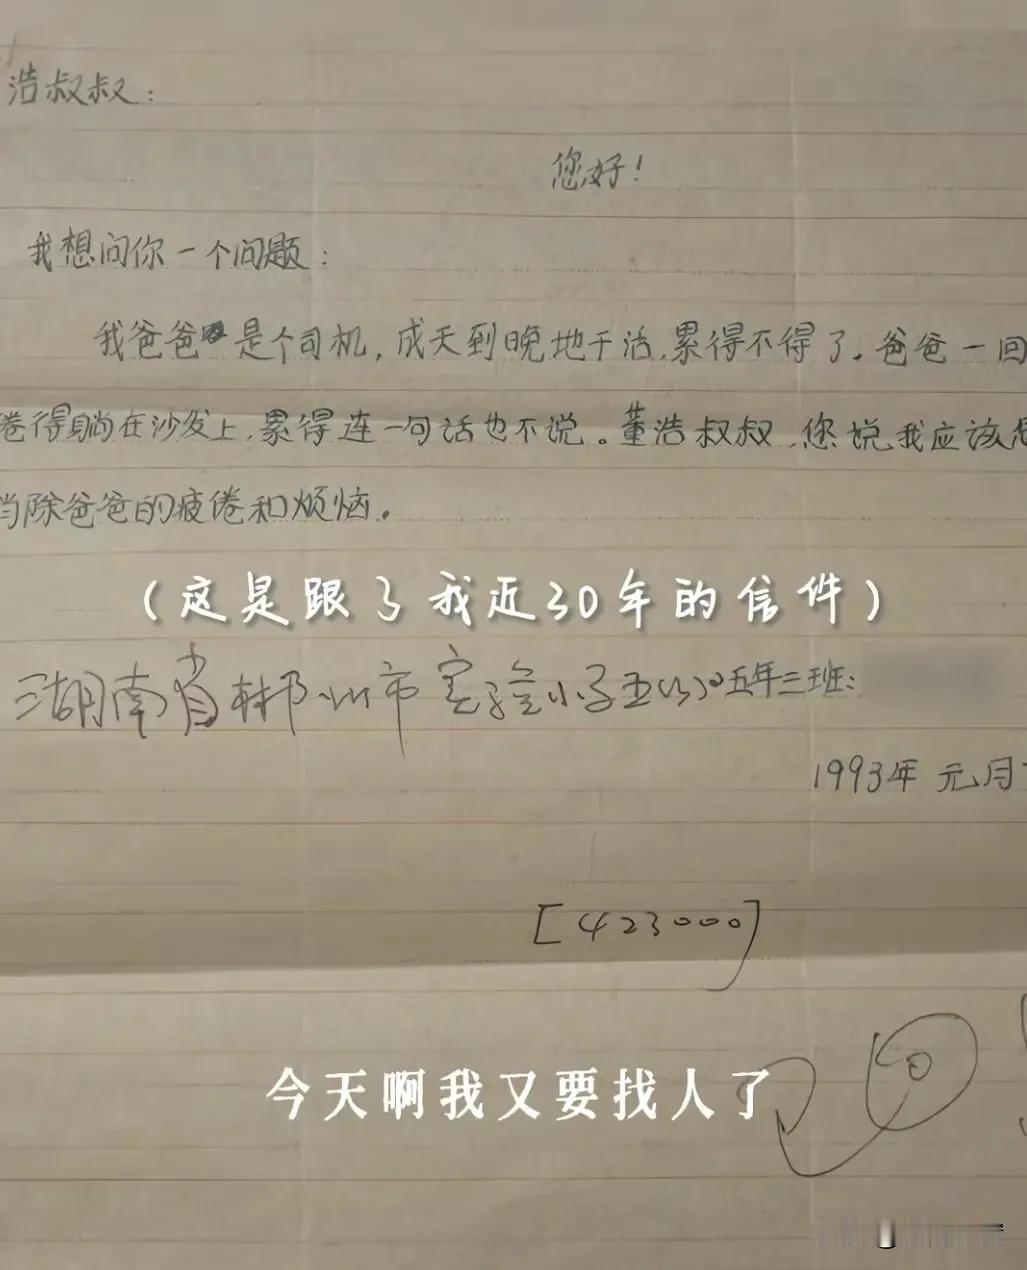 浩叔叔：
您好！
我想问你一个问题：
我爸爸是个司机，成天到晚地干活，累得不得了。爸爸一回
倦得躺在沙发上，累得连一句话也不说。董浩叔叔，您说，我应该怎
除爸爸的疲倦和烦恼。
（这是跟了我近30年的信件）
湖南省郴州市实验小学五(3)五年三班：
1993年元月
[423000]
今天啊我又要找人了